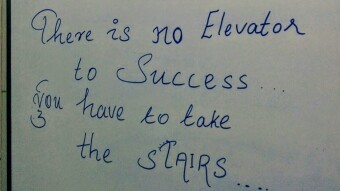 There is no Elevator
to Success...
You have to take
the STAIRS....